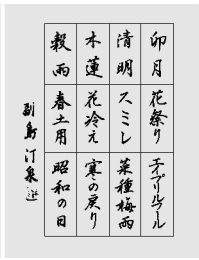 卯月
花祭り
エイプリルフール
清明
スミレ
菜種梅雨
木蓮
花冷え
寒の戻り
穀雨
春土用
昭和の日
副島汀泉遊